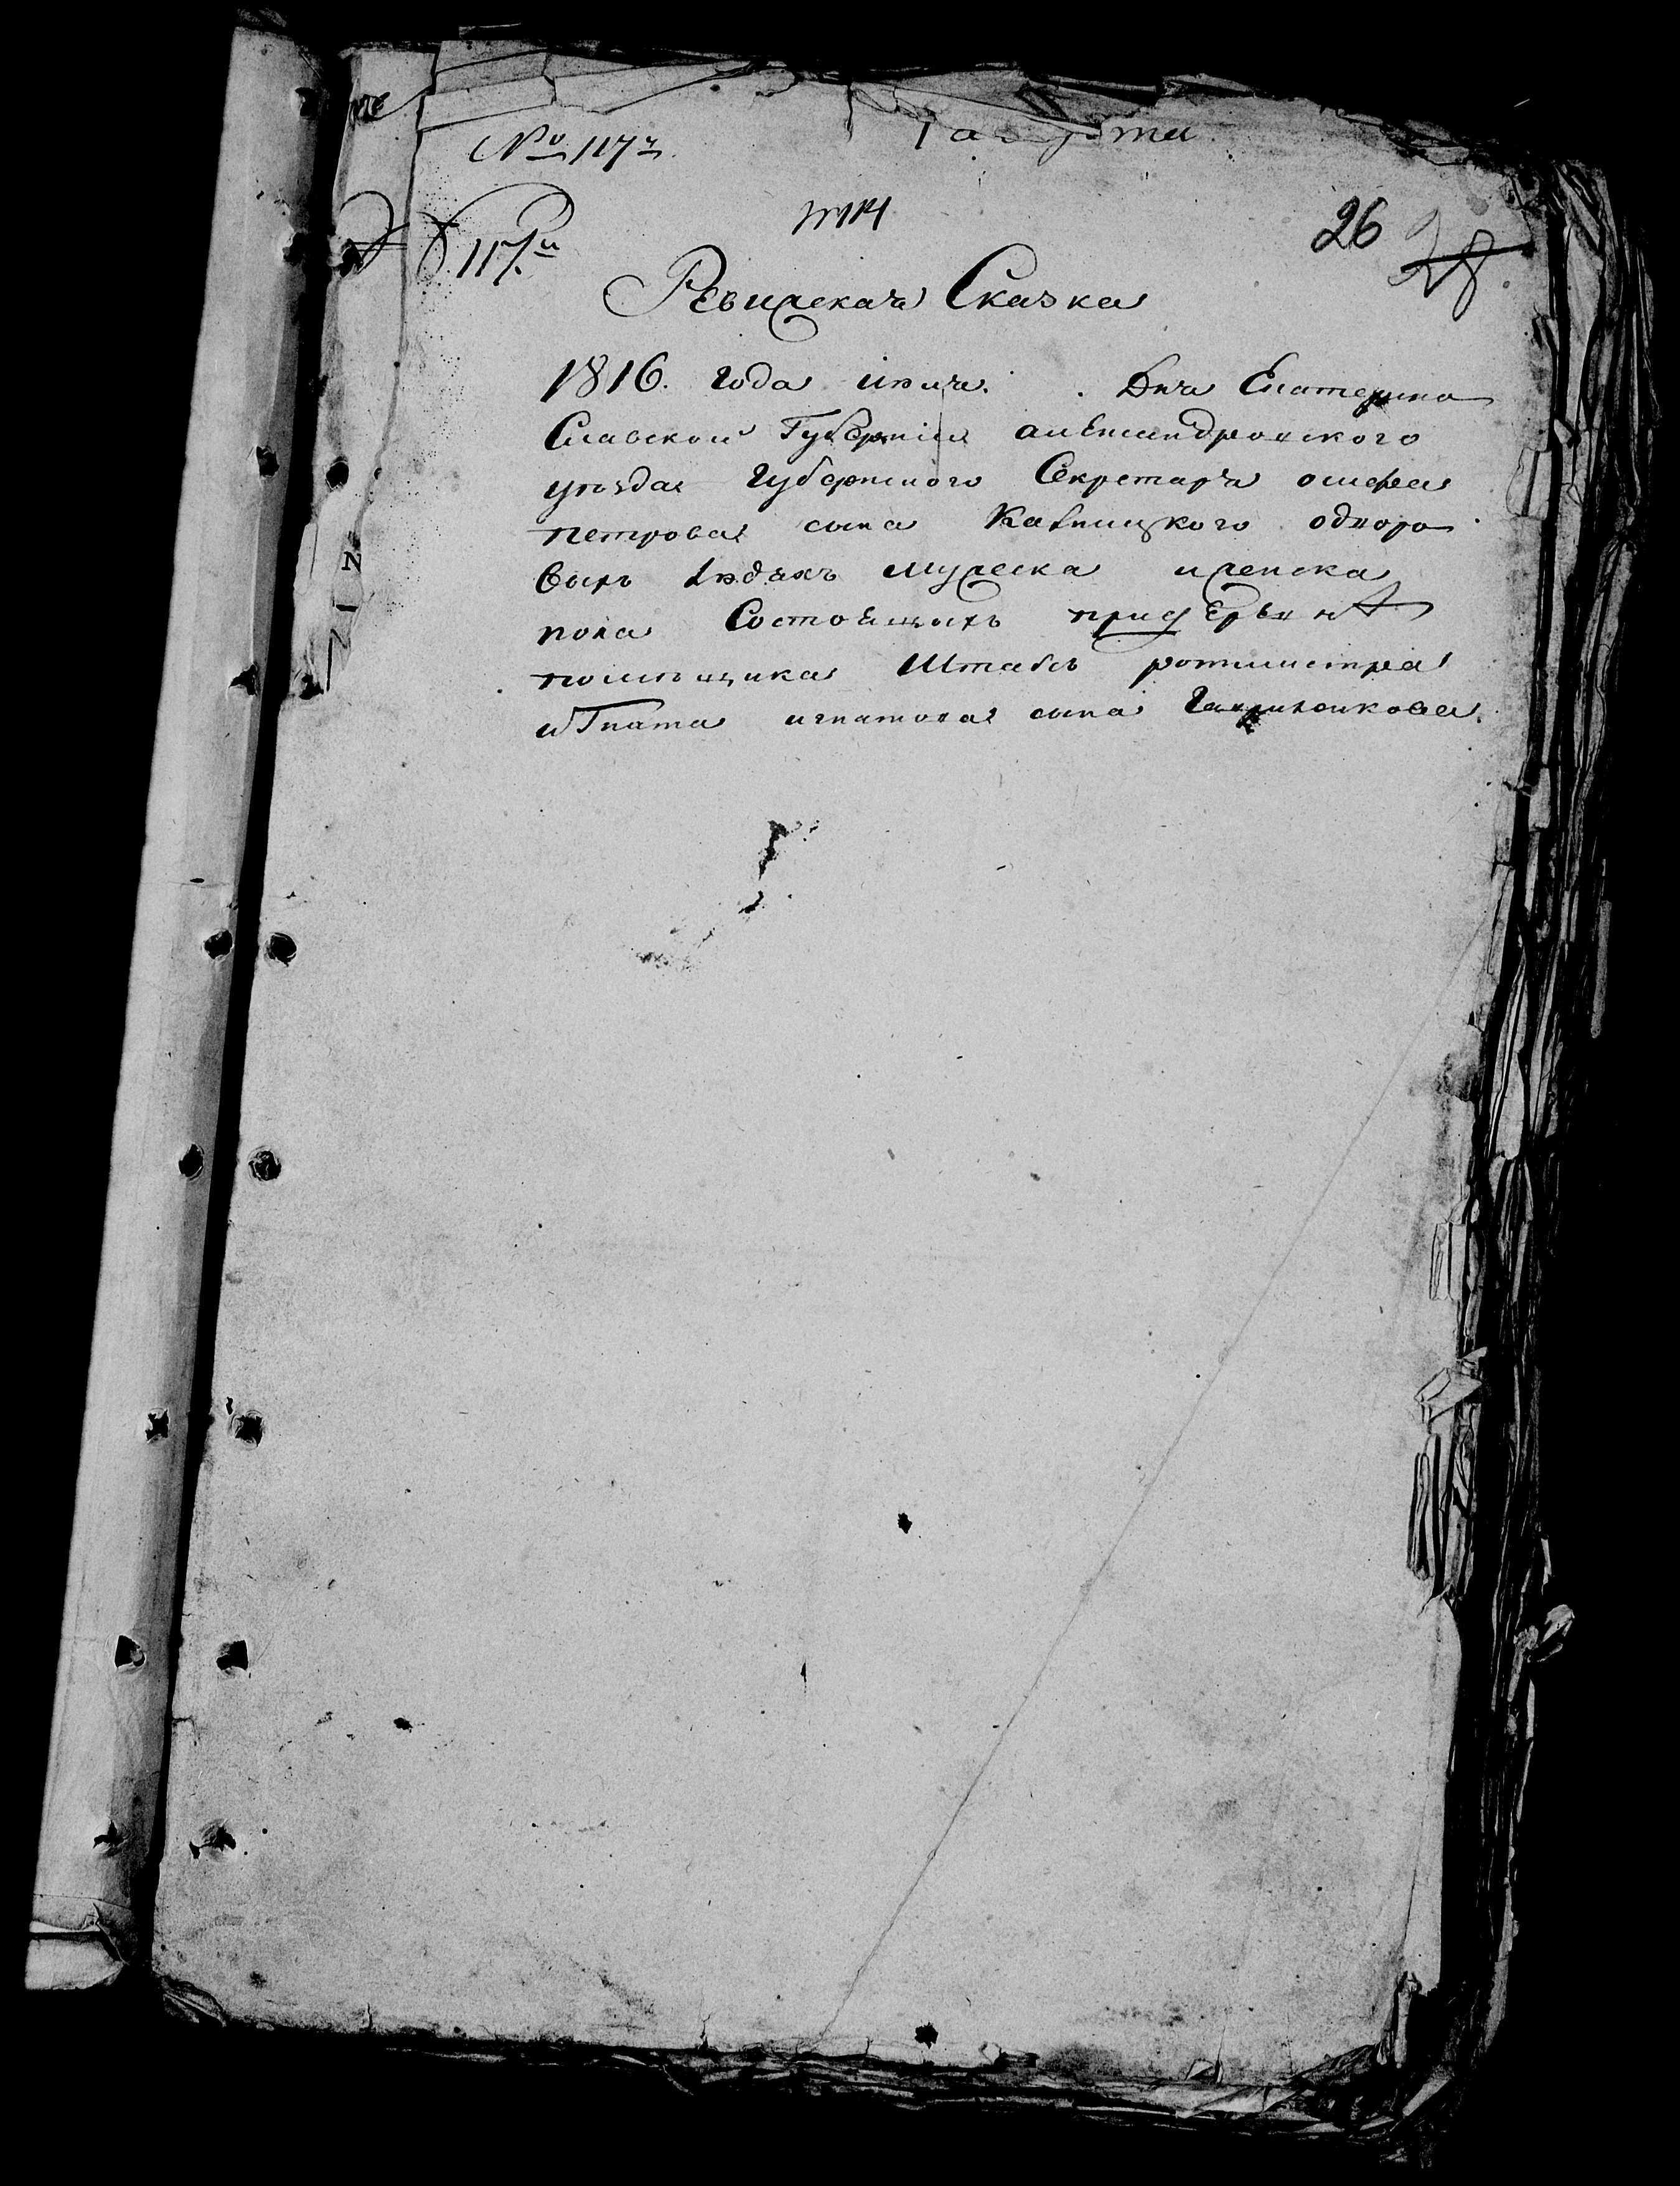 № 117й
117й
26
28
Ревизская Сказка
1816. года июля. Дня Екатерино
Славской Губернии александровского
уезда Губернского Секретаря осифа
петрова сына одворо
выхъ людяхъ мужеска иженска
пола Состоящыхъ при деревнѣ
помѣщика Штабсъ ротмистра
игната игнатова сына